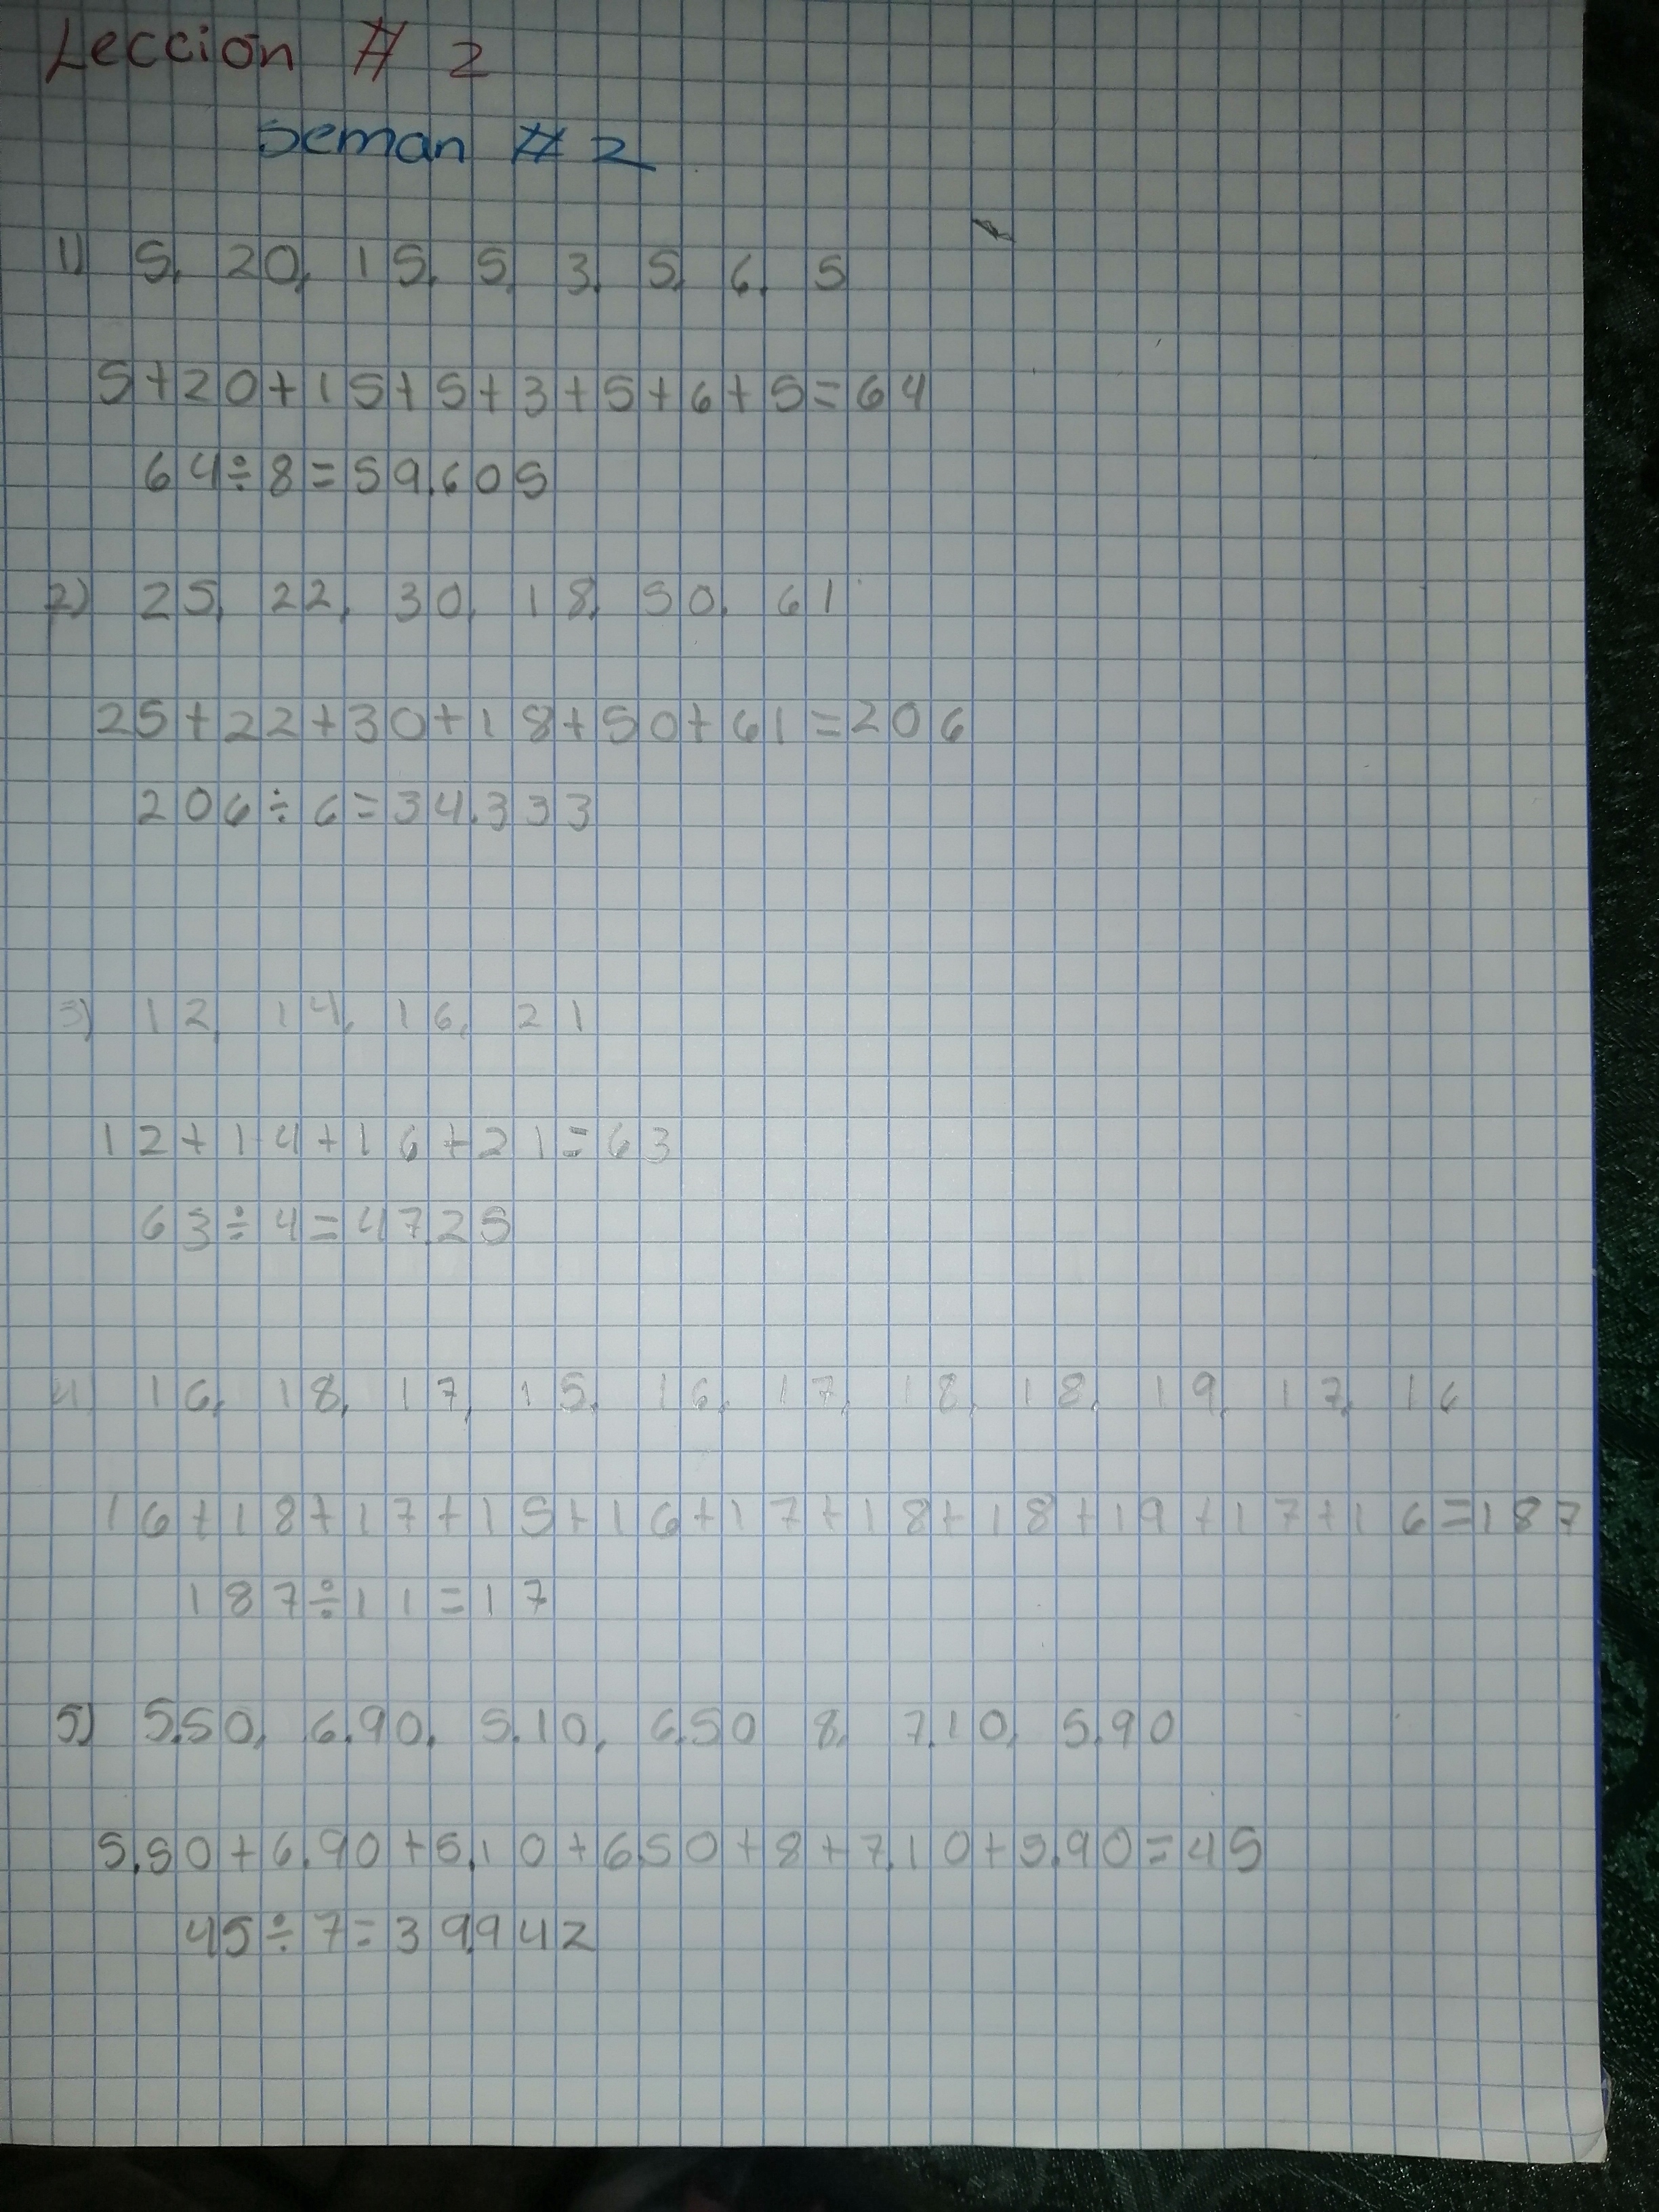 Leccion # 2
Seman # 2
1) 5, 20, 15, 5, 3, 5, 6, 5
5+20+15+5+3+5+6+5=64
64÷8=59.605
2) 25, 22, 30, 18, 50, 61
25+22+30+18+50+61=206
206÷6=34.333
3) 12, 14, 16, 21
12+14+16+21=63
63÷4=47.25
4) 16, 18, 17, 15, 16, 17, 18, 18, 19, 17, 16
16+18+17+15+16+17+18+18+19+17+16=187
187÷11=17
5) 5.50, 6.90, 5.10, 6.50 8, 7.10, 5.90
5.50+6.90+5.10+6.50+8+7.10+5.90=45
45÷7=39.942